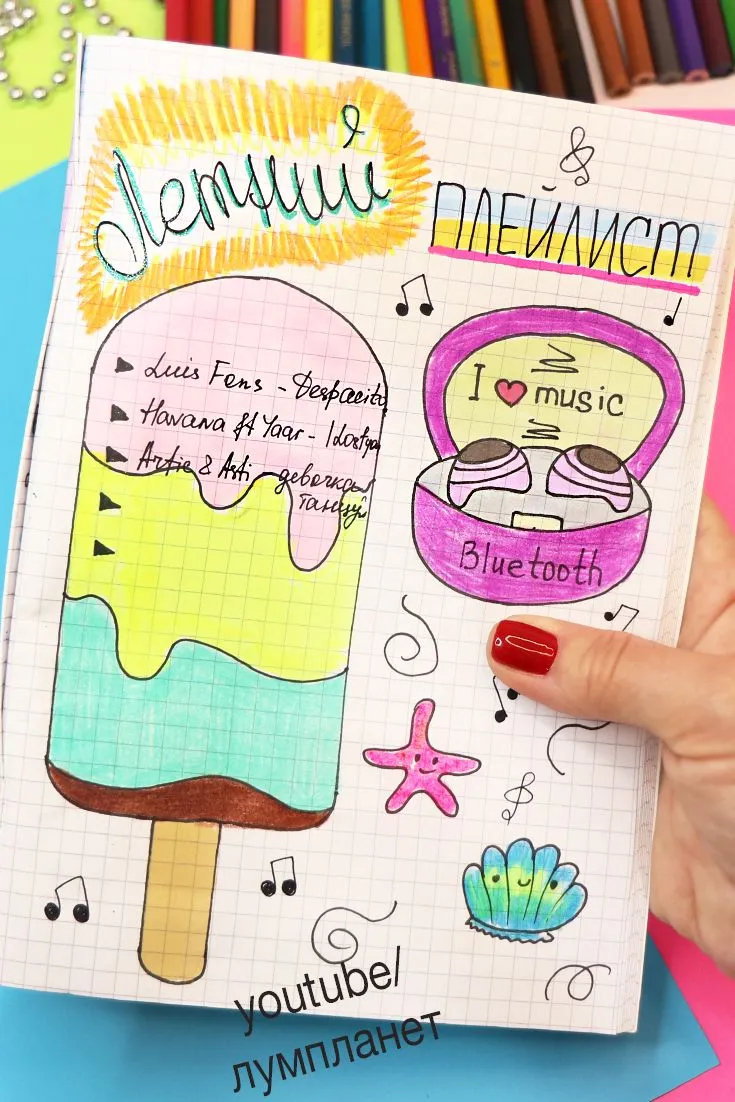 Летний
ПЛЕЙЛИСТ
Luis Fons - Despacito
Havana ft Yaar - I Lost you
Artic & Asti - девочка
танцуй
I ❤ music
Bluetooth
youtube/
лумпланет